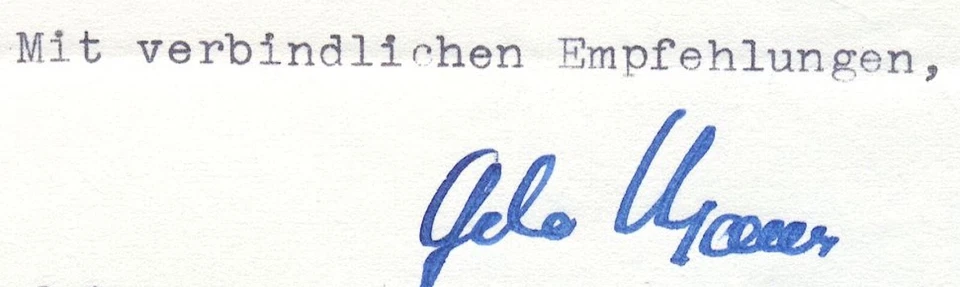 Mit verbindlichen Empfehlungen,